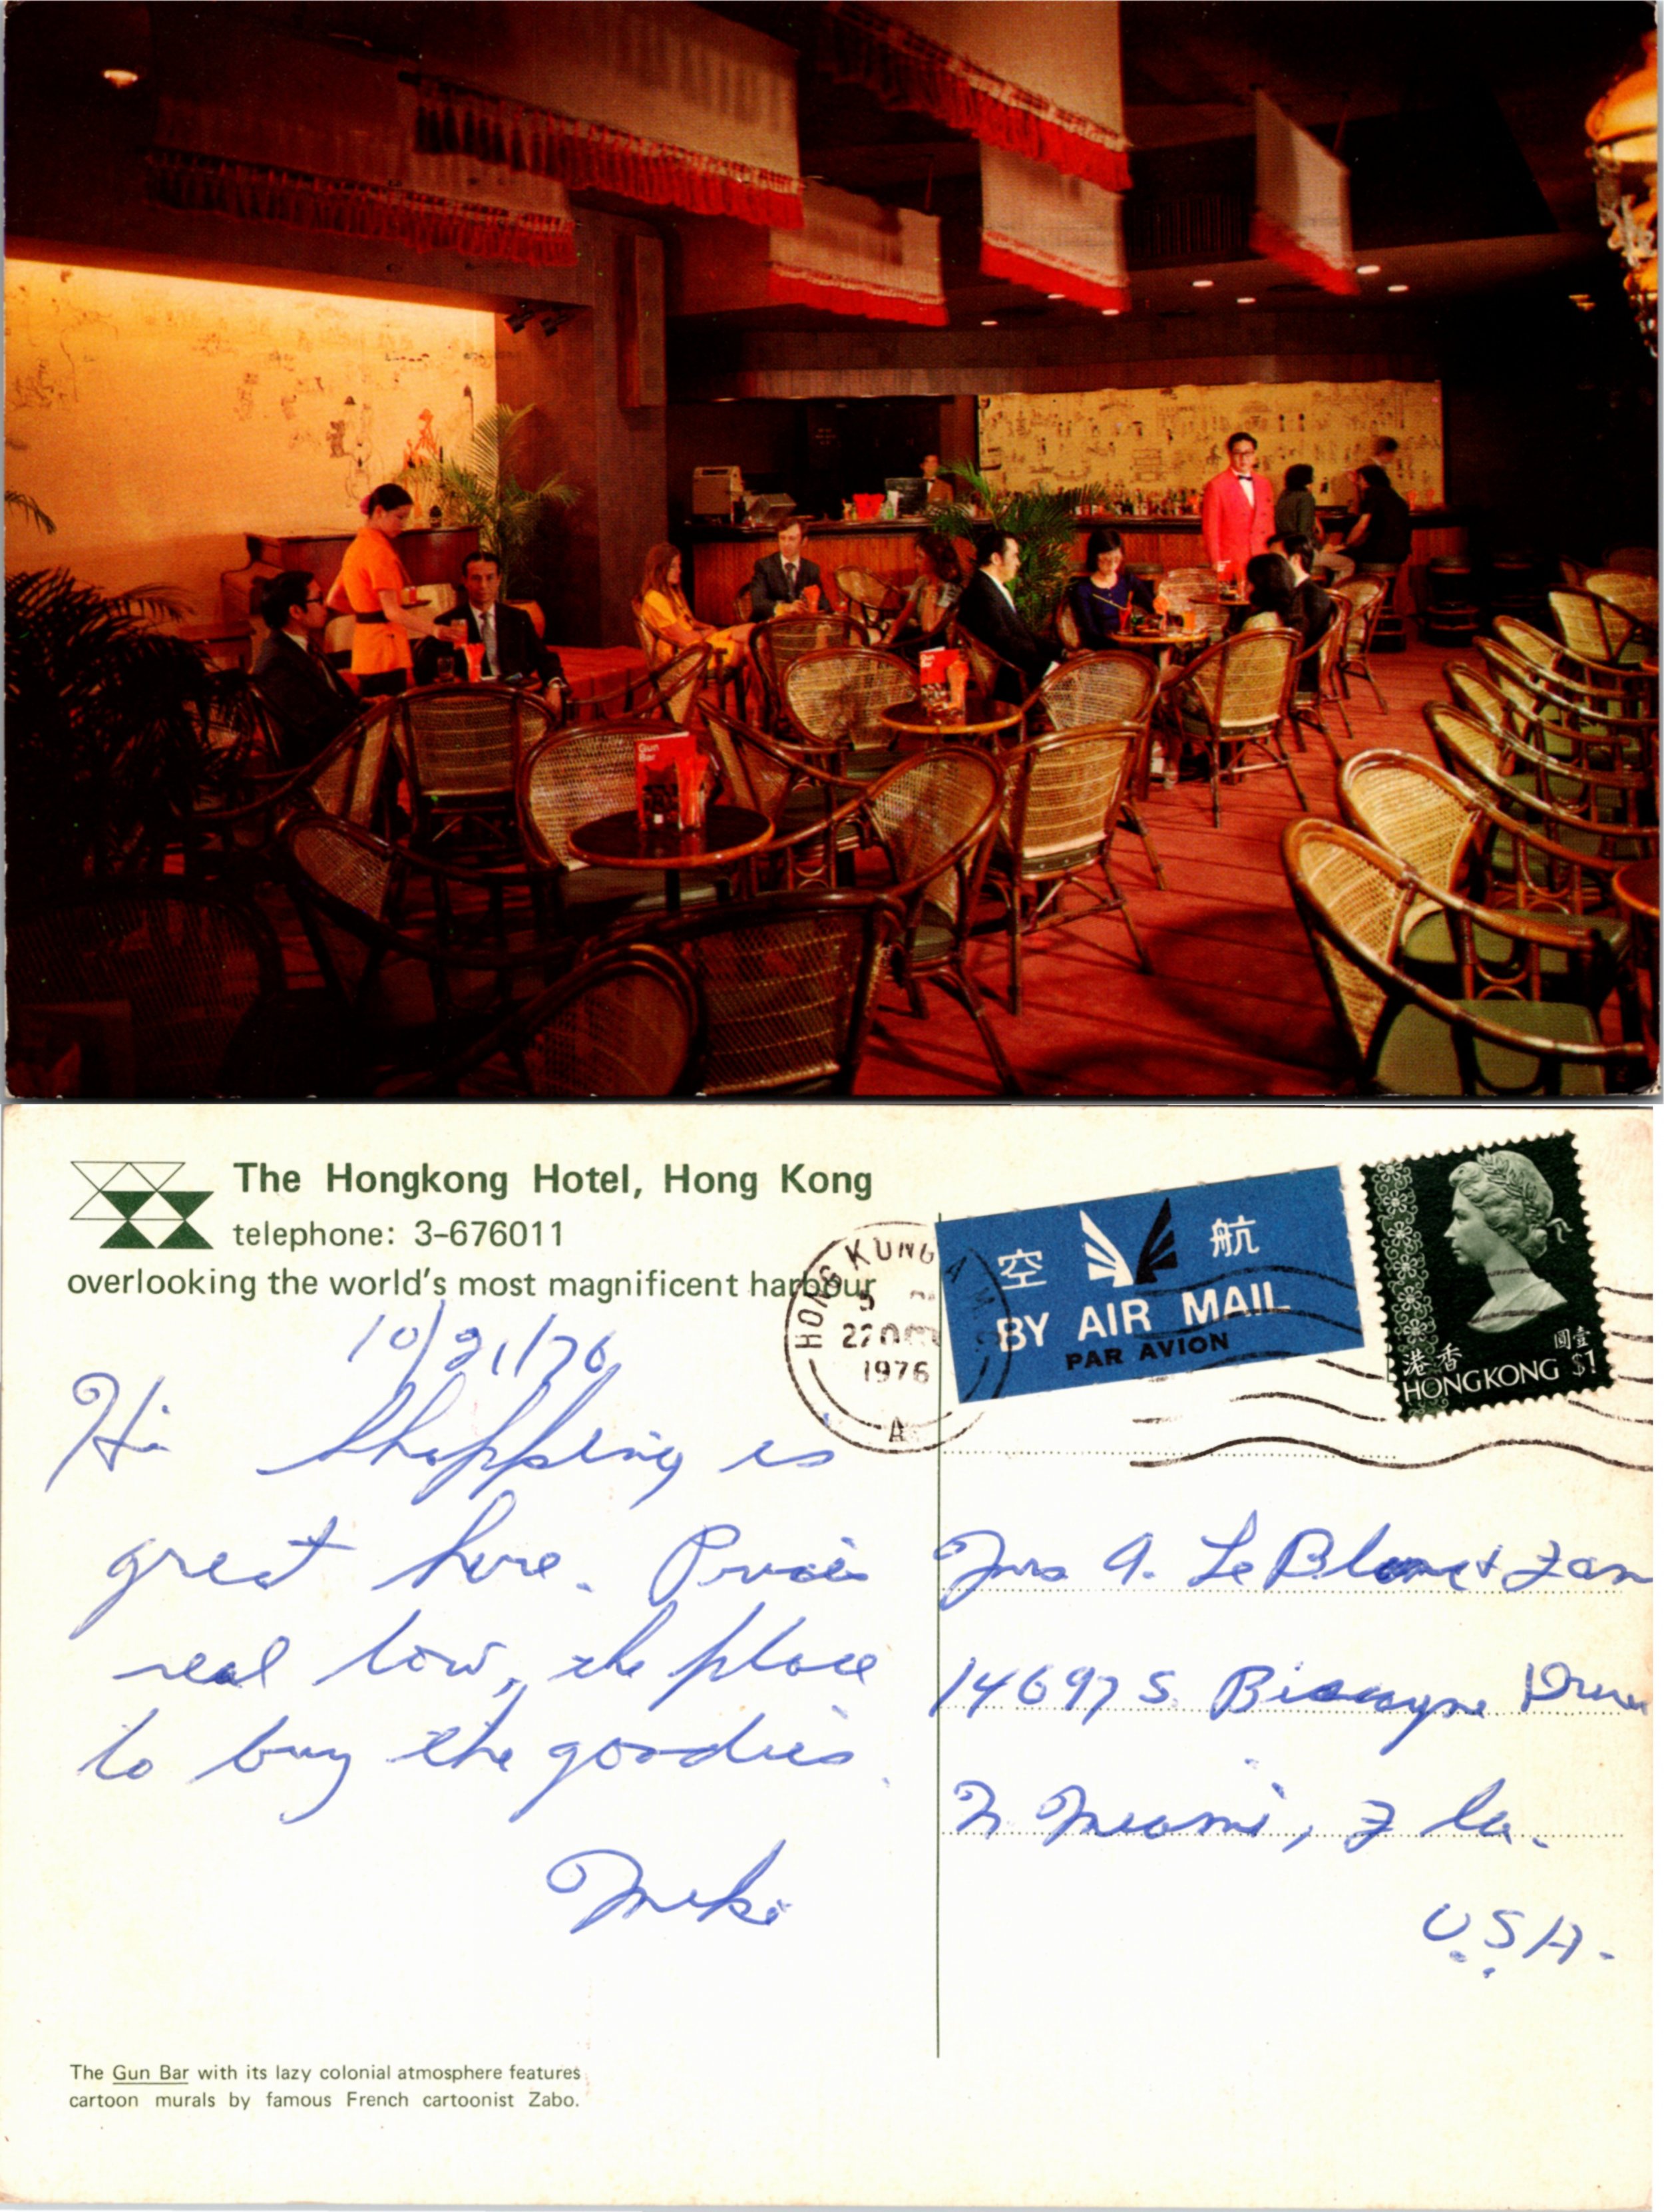 Gun
Bar
Gun
Bar
The Hongkong Hotel, Hong Kong
telephone: 3-676011
overlooking the world's most magnificent harbour
HONG KONG
22 OCT
1976
A
空 航
BY AIR MAIL
PAR AVION
港香 圓壹
HONGKONG $1
10/21/76
Hi Shopping is
great here. Prices
real low, the place
to buy the goodies.
Miki
Mrs A. LeBlanc & Fam
14697 S. Biscayne Drive
N. Miami, Fla.
U.S.A.
The Gun Bar with its lazy colonial atmosphere features
cartoon murals by famous French cartoonist Zabo.